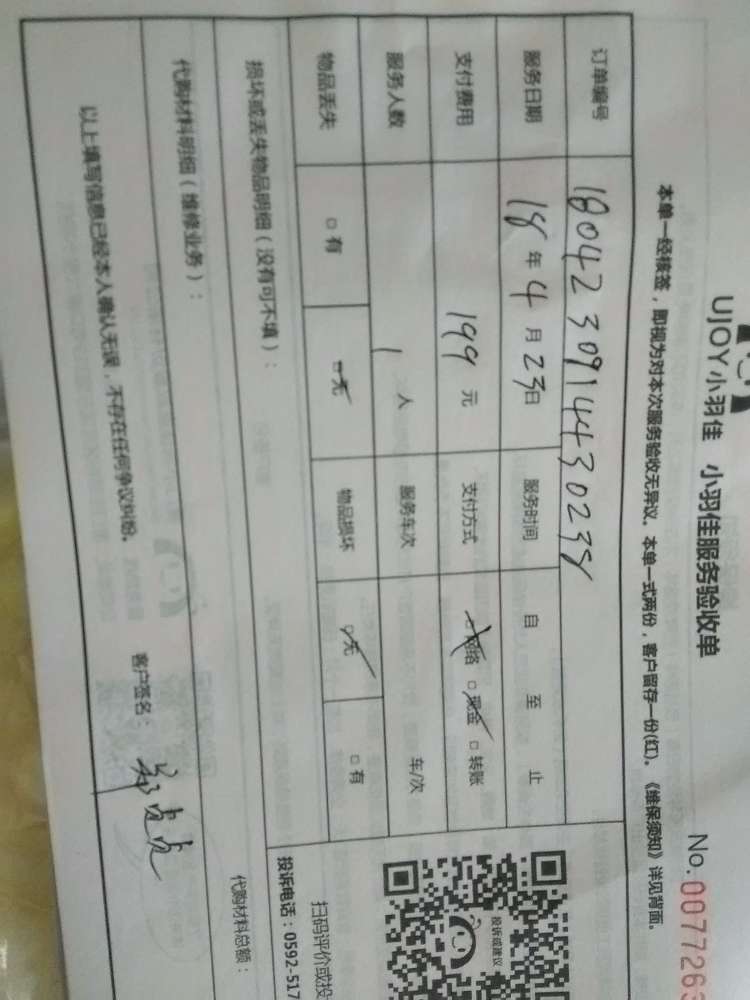 UJOY小羽佳 小羽佳服务验收单
No.0077263
本单一经核签，即视为对本次服务验收无异议。本单一式两份，客户留存一份(红)。《维保须知》详见背面。
订单编号 180423091443023
服务日期 18年4月23日 服务时间 自 至 止
支付费用 199元 支付方式 □网络 □现金 □转账
服务人数 1人 服务车次 车/次
物品丢失 □有 □无 物品损坏 □无 □有
损坏或丢失物品明细（没有可不填）：
投诉或建议
扫码评价或投
投诉电话：0592-517
代购材料明细（维修业务）：
代购材料总额：
以上填写信息已经本人确认无误，不存在任何争议纠纷。
客户签名：